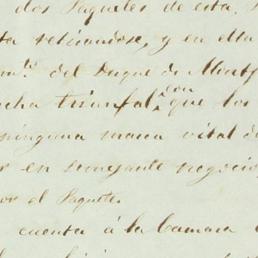 dos Paquetes de esta.
ta reticiandose, y en ella
del Duque de Montp
cha triunfal, con que los
ninguna manera vital de
r en semejante negocio
or el Paquete.
cuenta á la Camara